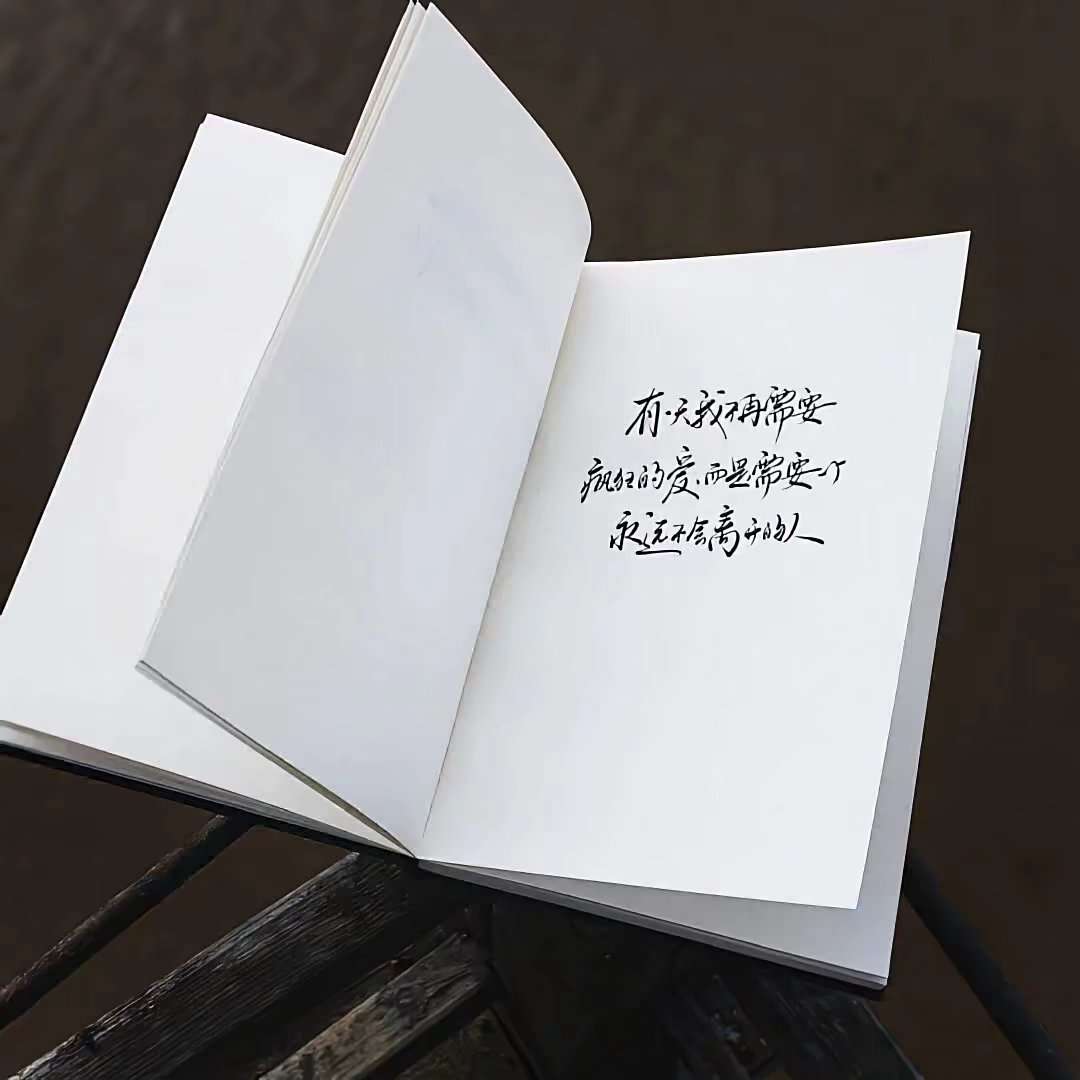 有一天我不再需要
疯狂的爱，而是需要一个
永远不会离开的人